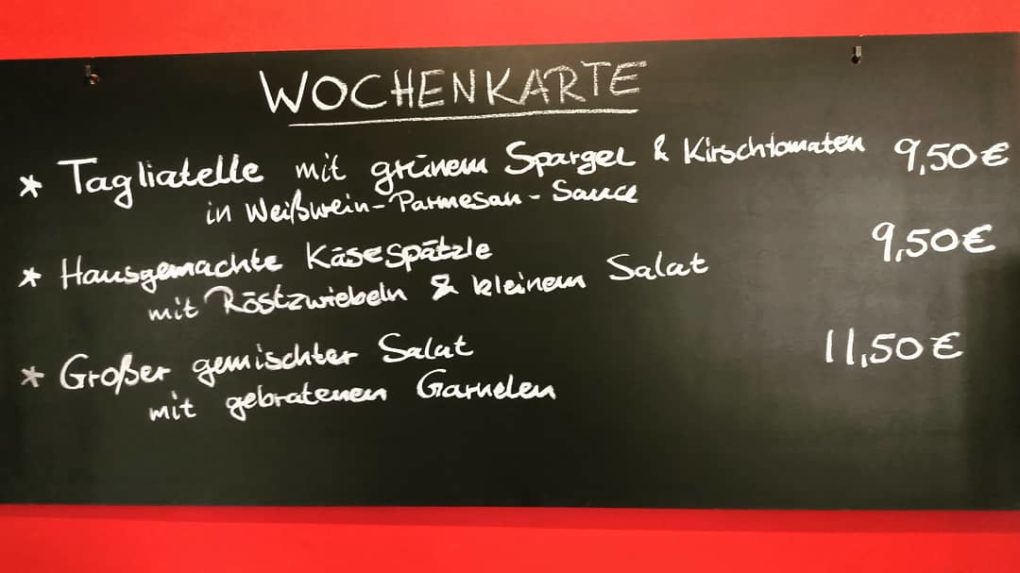 WOCHENKARTE
* Tagliatelle mit grünem Spargel & Kirschtomaten 9,50€
in Weißwein-Parmesan-Sauce
* Hausgemachte Käsespätzle 9,50€
mit Röstzwiebeln & kleinem Salat
* Großer gemischter Salat 11,50€
mit gebratenen Garnelen